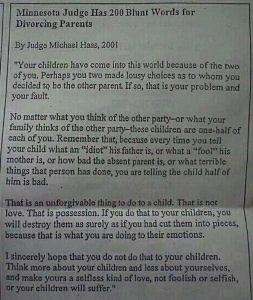 Minnesota Judge Has 200 Blunt Words for
Divorcing Parents
By Judge Michael Haas, 2001
"Your children have come into this world because of the two
of you. Perhaps you two made lousy choices as to whom you
decided to be the other parent. If so, that is your problem and
your fault.
No matter what you think of the other party–or what your
family thinks of the other party–these children are one-half of
each of you. Remember that, because every time you tell
your child what an "idiot" his father is, or what a "fool" his
mother is, or how bad the absent parent is, or what terrible
things that person has done, you are telling the child half of
him is bad.
That is an unforgivable thing to do to a child. That is not
love. That is possession. If you do that to your children, you
will destroy them as surely as if you had cut them into pieces,
because that is what you are doing to their emotions.
I sincerely hope that you do not do that to your children.
Think more about your children and less about yourselves,
and make yours a selfless kind of love, not foolish or selfish,
or your children will suffer."